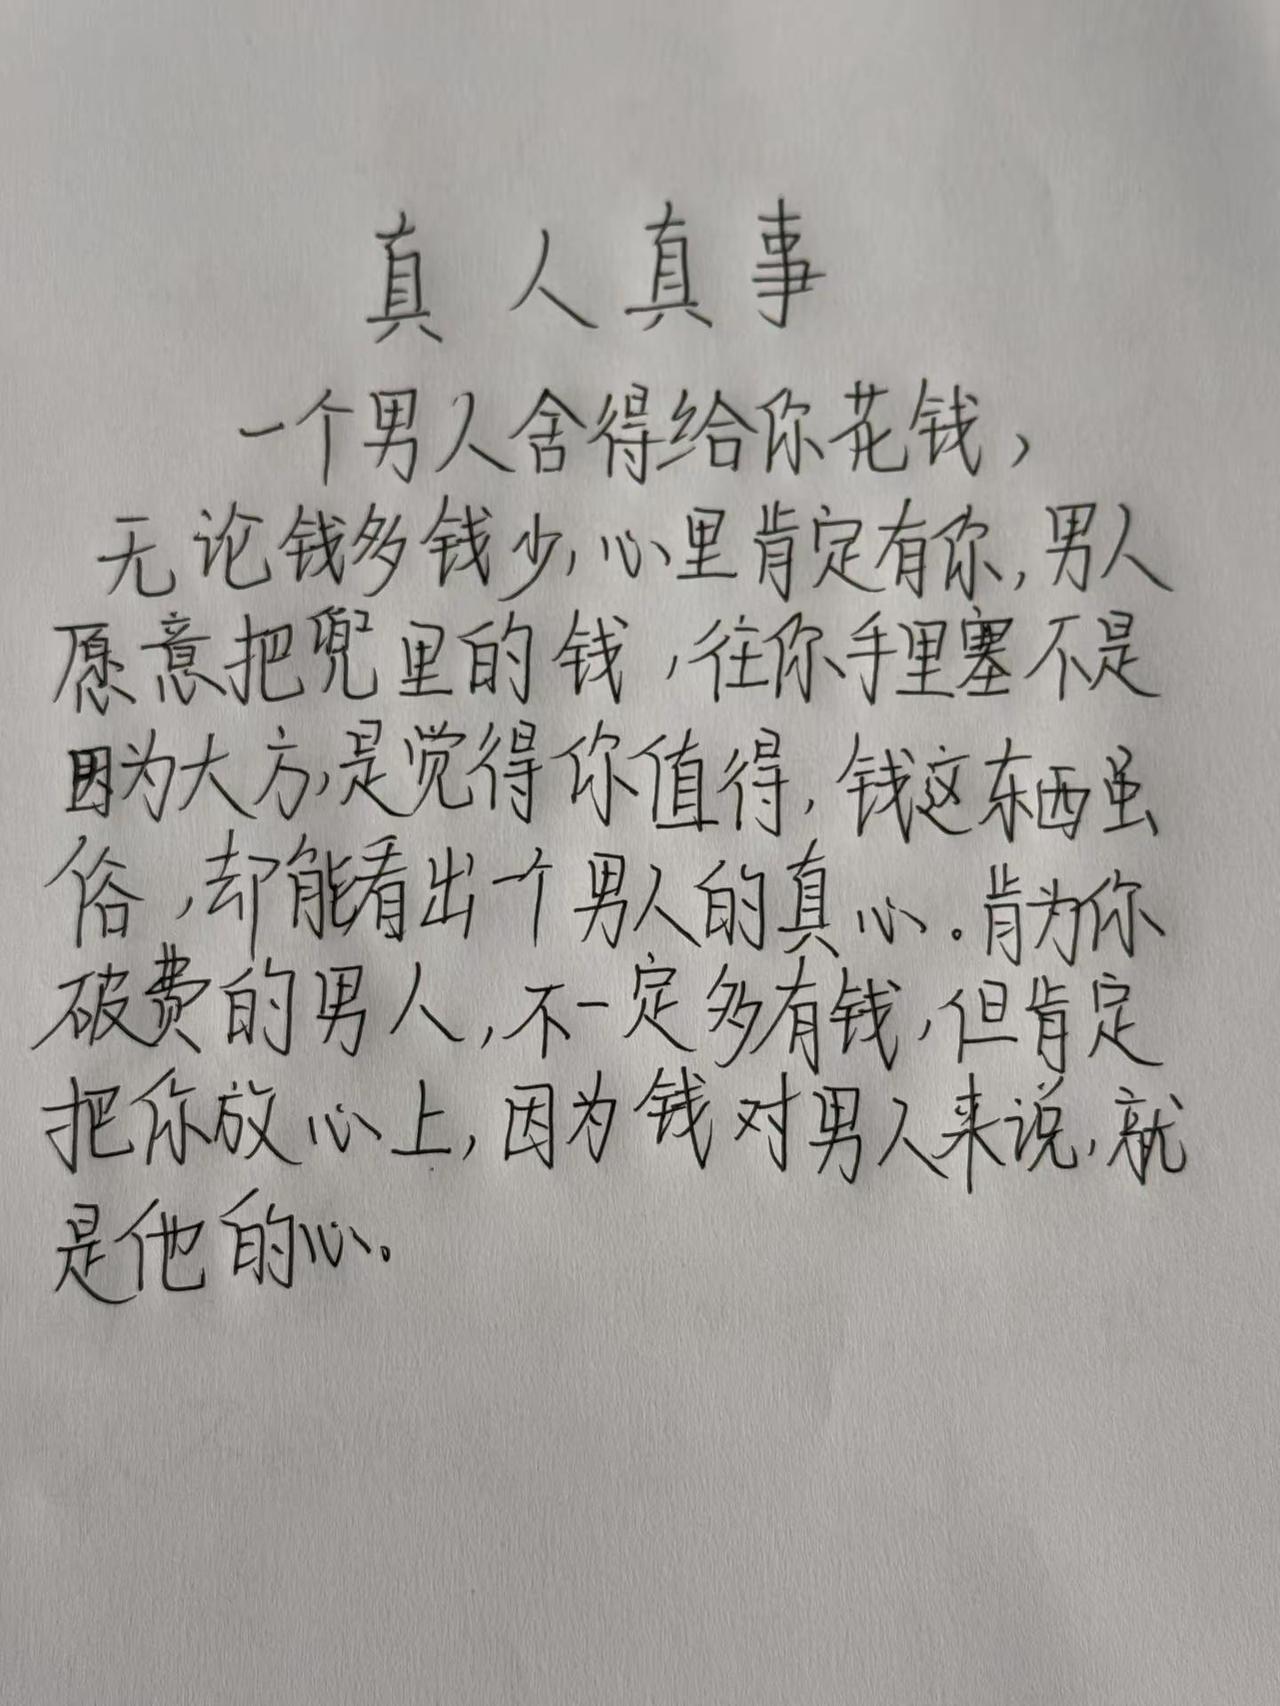 真人真事
一个男人舍得给你花钱，
无论钱多钱少，心里肯定有你，男人
愿意把兜里的钱，往你手里塞不是
因为大方，是觉得你值得，钱这东西虽
俗，却能看出一个男人的真心。肯为你
破费的男人，不一定多有钱，但肯定
把你放心上，因为钱对男人来说，就
是他的心。